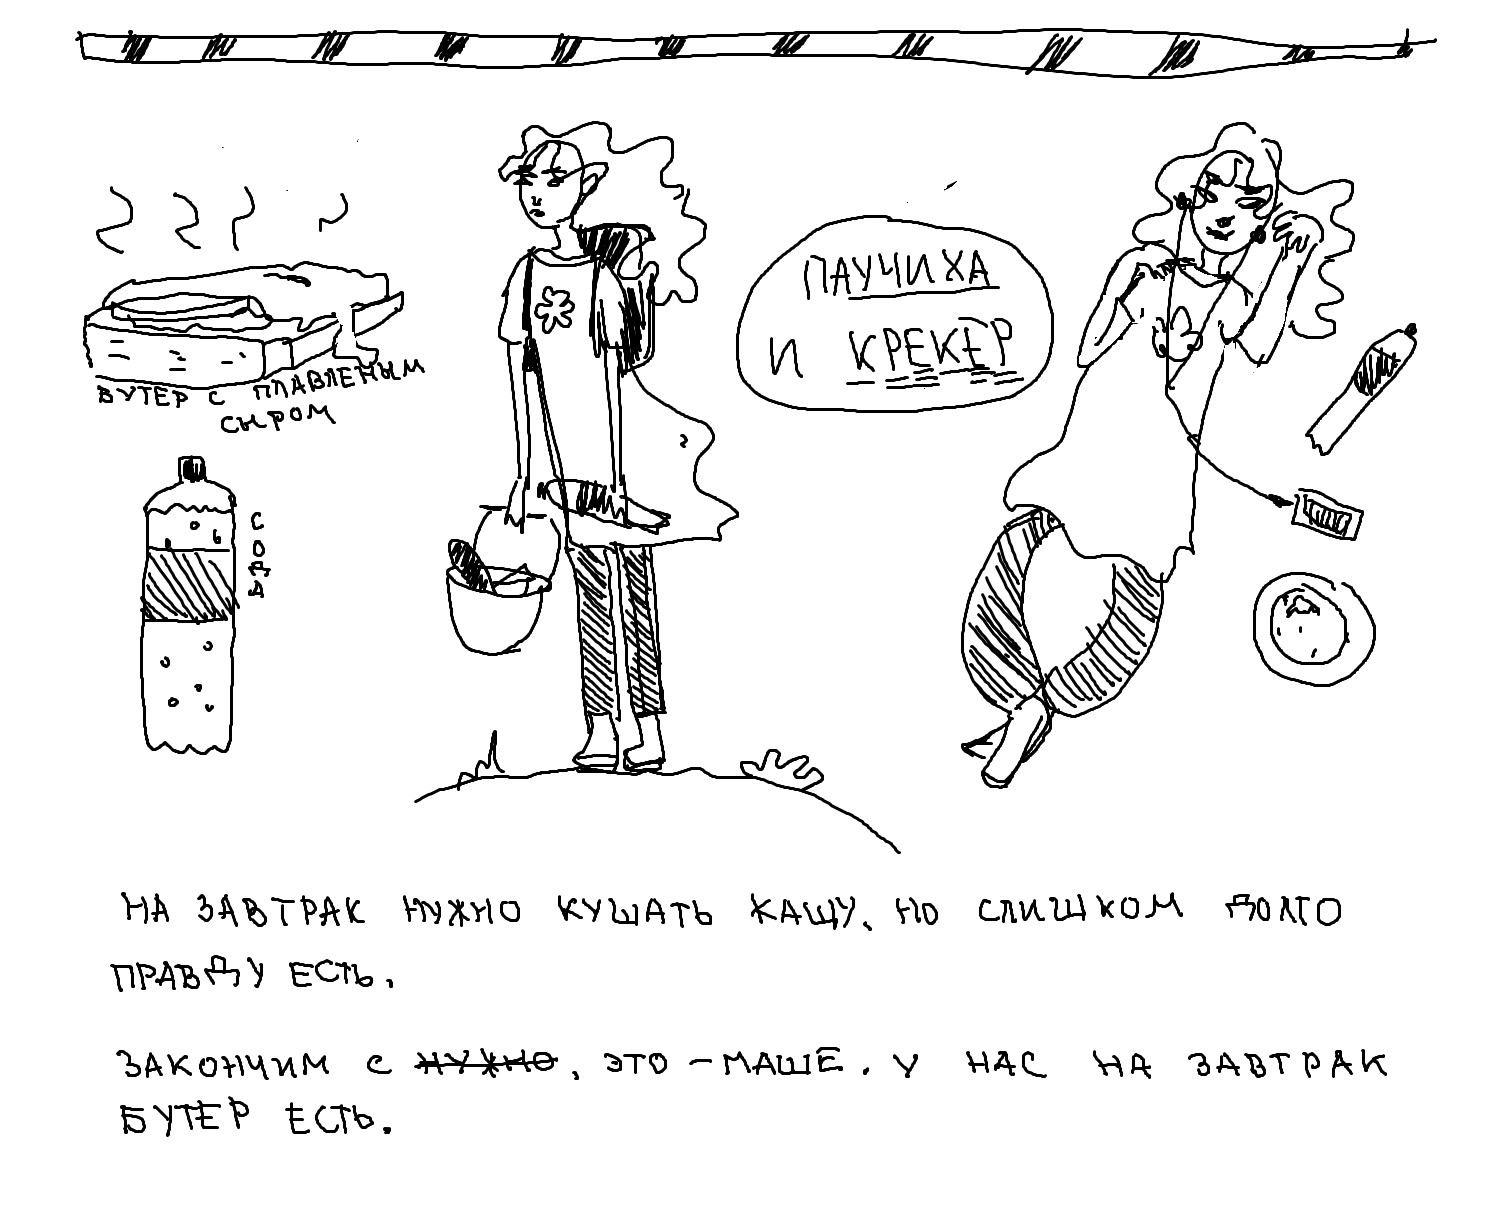 БУТЕР С ПЛАВЛЕНЫМ
СЫРОМ
СОДА
ПАУЧИХА
И КРЕКЕР
НА ЗАВТРАК НУЖНО КУШАТЬ КАЩУ, НО СЛИШКОМ ДОЛГО
ПРАВДУ ЕСТЬ.
ЗАКОНЧИМ С НУЖНО, ЭТО – МАШЕ. У НАС НА ЗАВТРАК
БУТЕР ЕСТЬ.